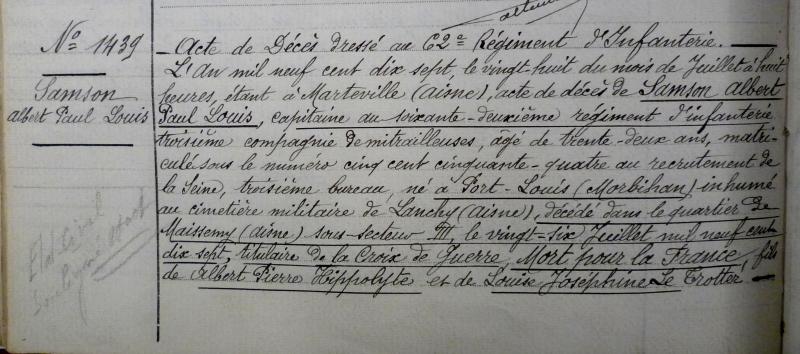 Nº 1439
Samson
Albert Paul Louis
Acte de Décès dressé au 62e Régiment d'Infanterie.
L'An mil neuf cent dix sept, le vingt-huit du mois de Juillet à huit
heures, étant à Marteville (Aisne), acte de décès de Samson Albert
Paul Louis, capitaine au soixante-deuxième régiment d'infanterie
troisième compagnie de mitrailleuses, âgé de trente-deux ans, matri-
culé sous le numéro cinq cent cinquante-quatre au recrutement de
la Seine, troisième bureau, né à Port-Louis (Morbihan) inhumé
au cimetière militaire de Lanchy (Aisne), décédé dans le quartier de
Maissemy (Aisne) sous-secteur III, le vingt-six Juillet mil neuf cent
dix sept, titulaire de la Croix de Guerre, Mort pour la France, fils
de Albert Pierre Hippolyte et de Louise Joséphine Le Trotter
Etat Civil